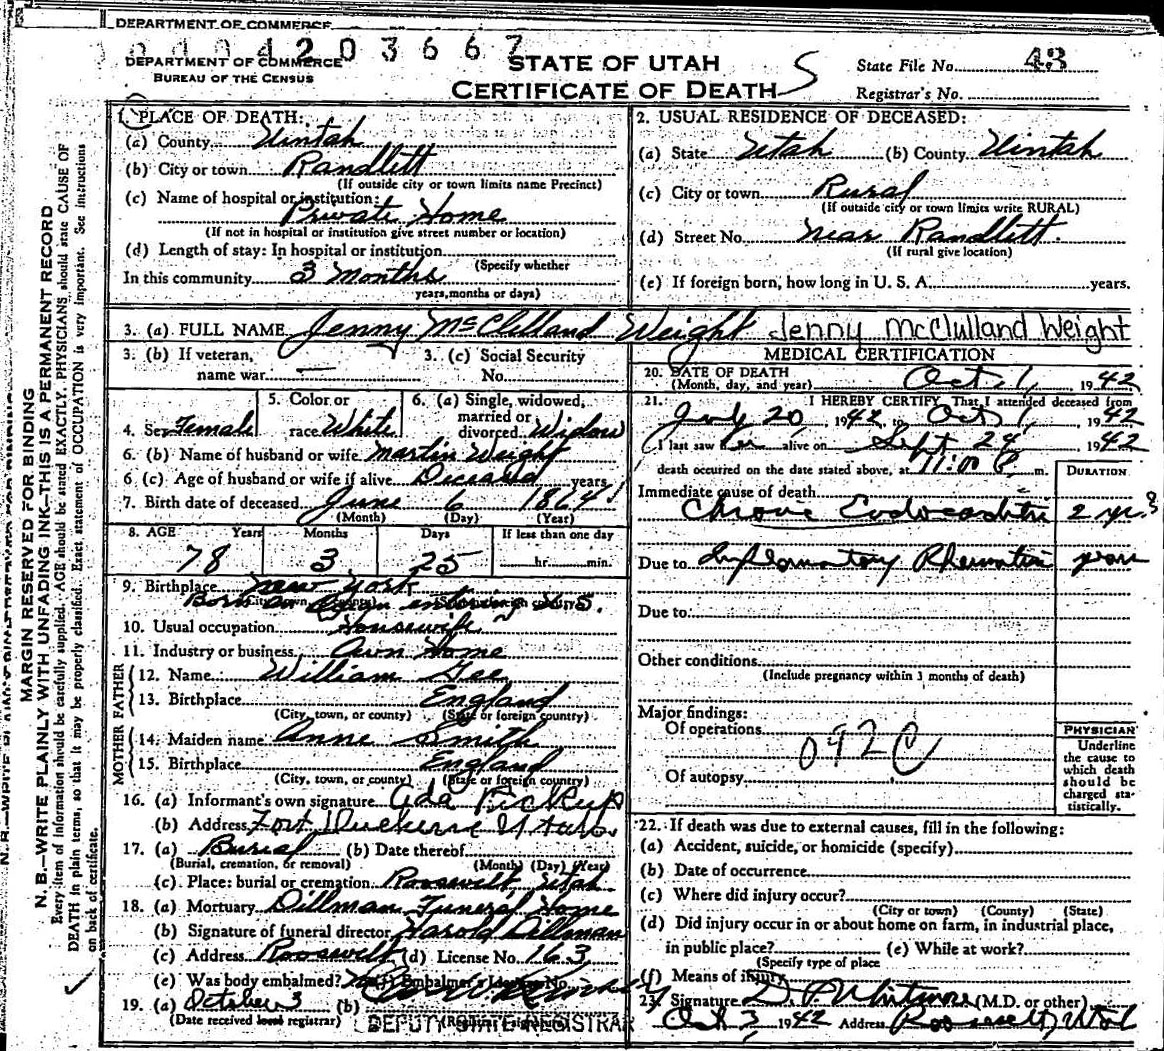 DEPARTMENT OF COMMERCE
0404203667
DEPARTMENT OF COMMERCE
BUREAU OF THE CENSUS
STATE OF UTAH
CERTIFICATE OF DEATH
S
State File No. 43
Registrar's No.
MARGIN RESERVED FOR BINDING
N. B.—WRITE PLAINLY WITH UNFADING INK—THIS IS A PERMANENT RECORD
Every item of information should be carefully supplied. AGE should be stated EXACTLY. PHYSICIANS should state CAUSE OF
DEATH in plain terms, so that it may be properly classified. Exact statement of OCCUPATION is very important. See instructions
on back of certificate.
1. PLACE OF DEATH:
(a) County Uintah
(b) City or town Randlett
(If outside city or town limits name Precinct)
(c) Name of hospital or institution:
Private Home
(If not in hospital or institution give street number or location)
(d) Length of stay: In hospital or institution
(Specify whether
In this community 3 Months
years, months or days)
2. USUAL RESIDENCE OF DECEASED:
(a) State Utah (b) County Uintah
(c) City or town Rural
(If outside city or town limits write RURAL)
(d) Street No. near Randlett.
(If rural give location)
(e) If foreign born, how long in U. S. A. years.
3. (a) FULL NAME Jenny McClilland Weight Jenny McClulland Weight
3. (b) If veteran,
name war —
3. (c) Social Security
No.
4. Sex Female
5. Color or
race White
6. (a) Single, widowed,
married or
divorced Widow
6. (b) Name of husband or wife Martin Weight
6 (c) Age of husband or wife if alive Deceased years
7. Birth date of deceased June 6 1864
(Month) (Day) (Year)
8. AGE Years Months Days If less than one day
78 3 25 hr. min.
9. Birthplace New York
Born on entering U.S.
(City, town, or county)
10. Usual occupation Housewife
11. Industry or business Own Home
FATHER
12. Name William Gee
13. Birthplace England
(City, town, or county) (State or foreign country)
MOTHER
14. Maiden name Anne Smith
15. Birthplace England
(City, town, or county) (State or foreign country)
16. (a) Informant's own signature Ada Pickup
(b) Address Fort Duchesne Utah.
17. (a) Burial (b) Date thereof
(Burial, cremation, or removal) (Month) (Day) (Year)
(c) Place: burial or cremation Roosevelt, Utah
18. (a) Mortuary Dillman Funeral Home
(b) Signature of funeral director Harold Dillman
(c) Address Roosevelt (d) License No. 163
(e) Was body embalmed? (f) Embalmer's License No.
19. (a) October 3 (b)
(Date received local registrar)
DEPUTY STATE REGISTRAR
MEDICAL CERTIFICATION
20. DATE OF DEATH
(Month, day, and year) Oct 1, 1942
21. I HEREBY CERTIFY, That I attended deceased from
July 20, 1942, to Oct 1, 1942
I last saw her alive on Sept 24, 1942
death occurred on the date stated above, at 11:00 P. m.
DURATION
Immediate cause of death
Chronic Endocarditis 2 yrs
Due to Inflammatory Rheumatism years
Due to
Other conditions
(Include pregnancy within 3 months of death)
Major findings:
Of operations
092C
Of autopsy
PHYSICIAN
Underline
the cause to
which death
should be
charged sta-
tistically.
22. If death was due to external causes, fill in the following:
(a) Accident, suicide, or homicide (specify)
(b) Date of occurrence
(c) Where did injury occur?
(City or town) (County) (State)
(d) Did injury occur in or about home on farm, in industrial place,
in public place? (e) While at work?
(Specify type of place
(f) Means of injury
23. Signature D. P. Whitmore (M.D. or other)
Oct 3, 1942 Address Roosevelt, Utah